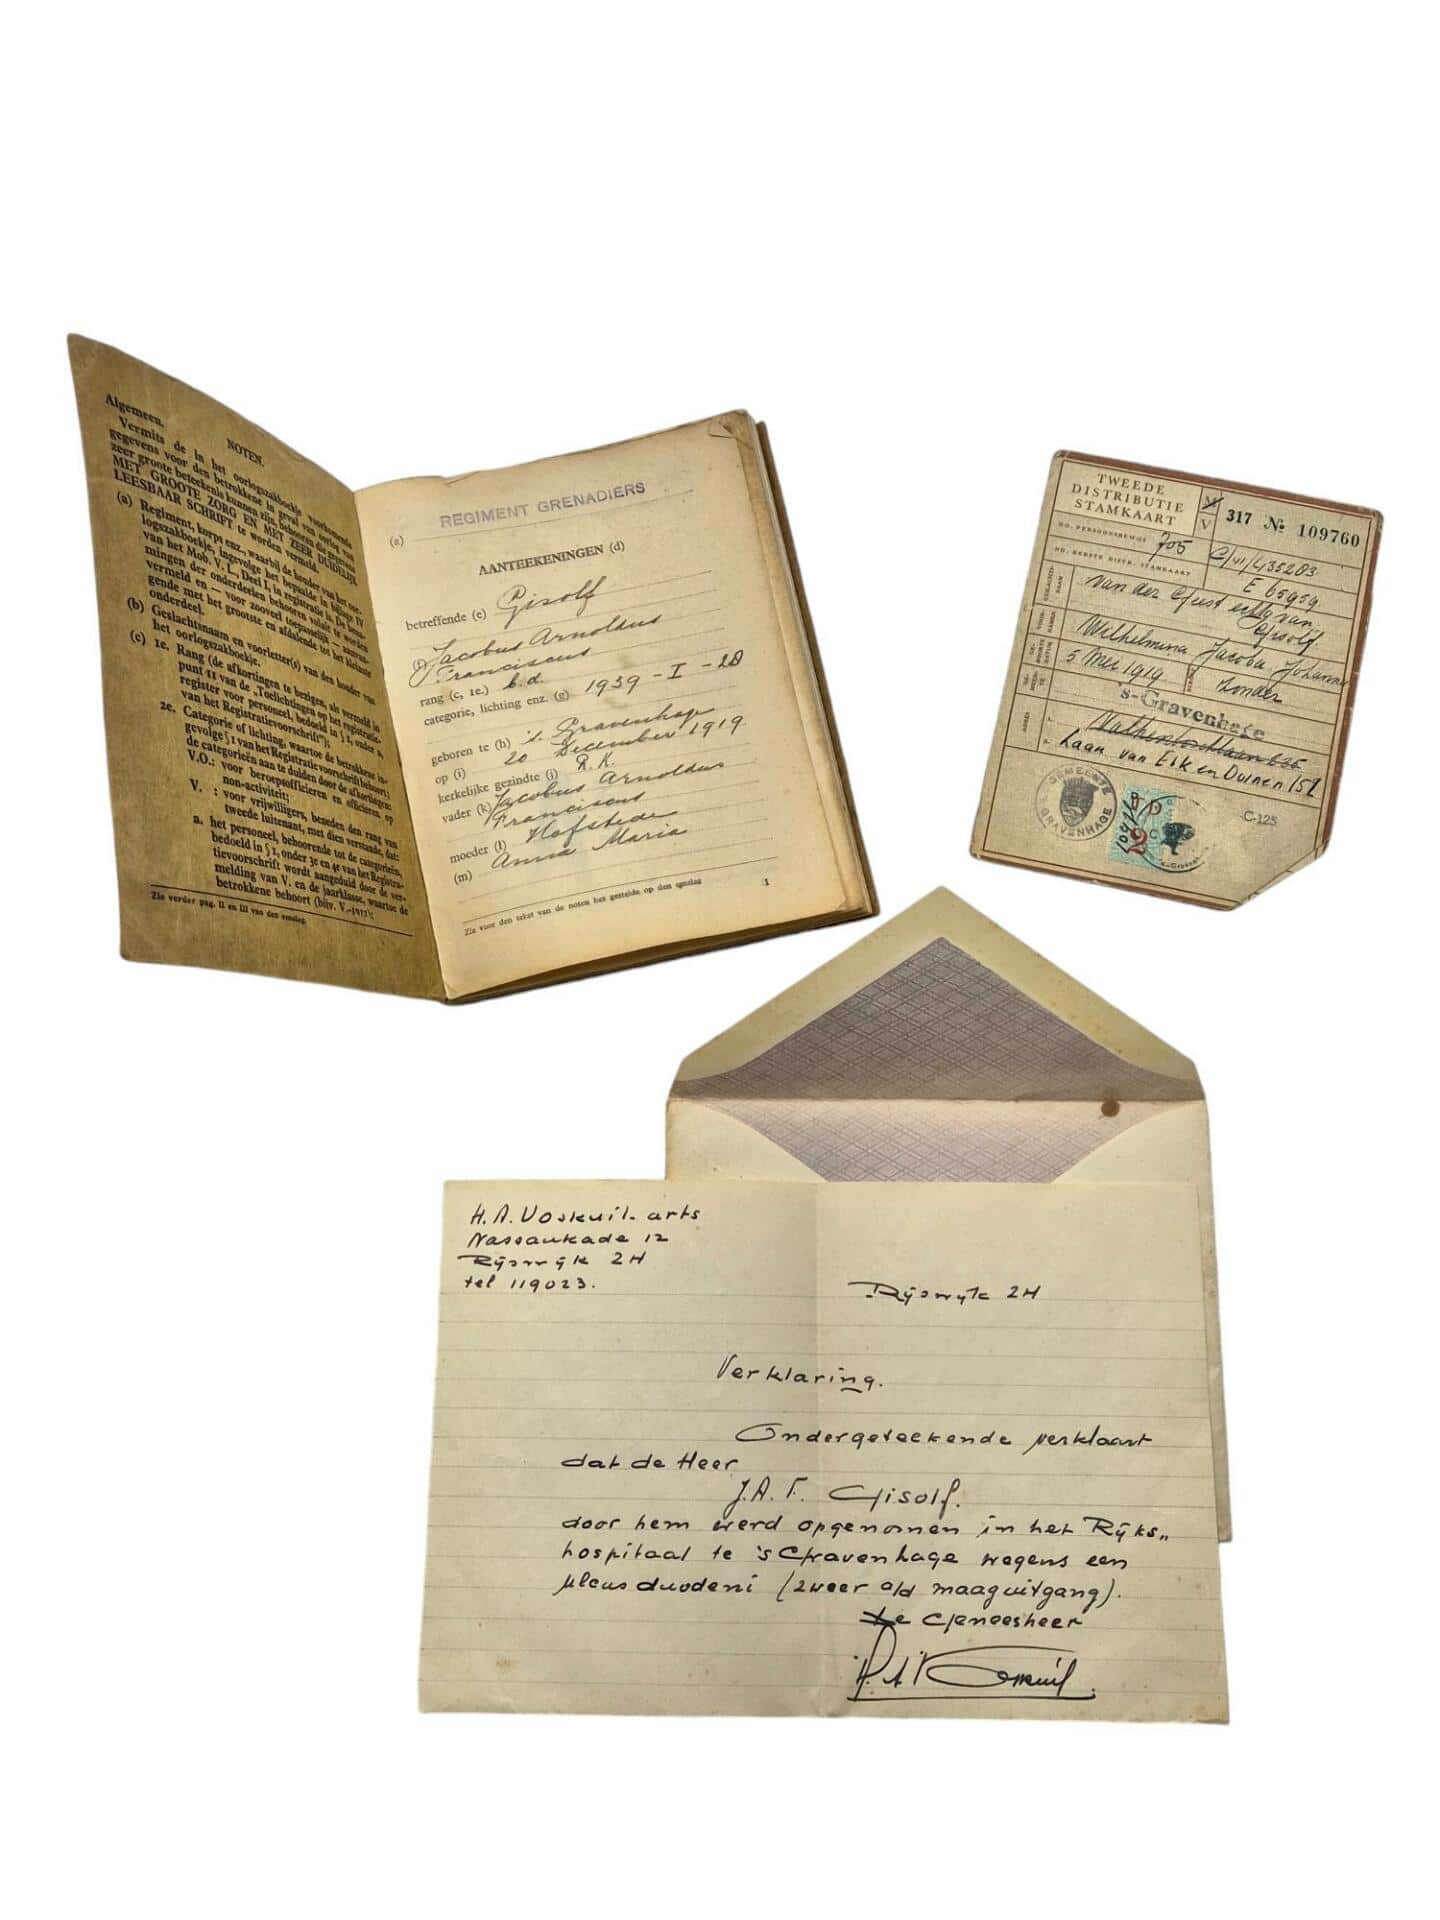 Algemeen.
NOTEN.
Vermits de in het oorlogszakboekje voorkomende
gegevens voor den betrokkene in geval van oorlog van
zeer groote beteekenis kunnen zijn, behooren die gegevens
MET GROOTE ZORG EN MET ZEER DUIDELIJK
LEESBAAR SCHRIFT te worden vermeld.
(a) Regiment, korps enz., waarbij de houder van het oor-
logszakboekje, ingevolge het bepaalde in bijlage IV
van het Mob. V. I., Deel I, in registratie is. De bena-
mingen der onderdeelen behooren voluit te worden
vermeld en — voor zooveel toepasselijk — aanvan-
gende met het grootste en afdalende tot het kleinste
onderdeel.
(b) Geslachtsnaam en voorletter(s) van den houder van
het oorlogszakboekje.
(c) 1e. Rang (de afkortingen te bezigen, als vermeld in
punt 11 van de „Toelichtingen op het registratie-
register voor personeel, bedoeld in § 1, onder a,
van het Registratievoorschrift”);
2e. Categorie of lichting, waartoe de betrokkene in-
gevolge § 1 van het Registratievoorschrift behoort;
de categorieën aan te duiden door de afkortingen:
V.O.: voor beroepsofficieren en officieren op
non-activiteit;
V. : voor vrijwilligers, beneden den rang van
tweede luitenant, met dien verstande, dat:
a. het personeel, behoorende tot de categorieën,
bedoeld in § 1, onder 3e en 4e van het Registra-
tievoorschrift wordt aangeduid door de ver-
melding van V. en de jaarklasse, waartoe de
betrokkene behoort (bijv. V.-1917);
Zie verder pag. II en III van den omslag
REGIMENT GRENADIERS
(a)
AANTEEKENINGEN (d)
betreffende (e) Gisolf
(f) Jacobus Arnoldus
Franciscus
rang (c, 1e.) b.d.
categorie, lichting enz. (g) 1939 - I - 28
geboren te (h) 's Gravenhage
op (i) 20 December 1919
kerkelijke gezindte (j) R.K.
vader (k) Jacobus Arnoldus
Franciscus
moeder (l) Hofstede
(m) Anna Maria
Zie voor den tekst van de noten het gestelde op den omslag
1
TWEEDE
DISTRIBUTIE
STAMKAART
M
V
317 № 109760
NO. PERSOONSBEWIJS 705
C/41/435283
NO. EERSTE DISTR. STAMKAART
E 65959
van der Gust echtg. van
Gisolf.
Wilhelmina Jacoba Johanna
5 Mei 1919
zonder
's-Gravenhage
ADRES
Laan van Eik en Duinen 152
GEMEENTE
'S GRAVENHAGE
C-125
H. A. Voskuil. arts
Nassaukade 12
Rijswijk ZH
tel 119023.
Rijswijk ZH
Verklaring.
Ondergeteekende verklaart
dat de Heer
J. A. F. Gisolf.
door hem werd opgenomen in het Rijks„
hospitaal te 's Gravenhage wegens een
ulcus duodeni (zweer a/d maaguitgang).
De Geneesheer
H. A. Voskuil.